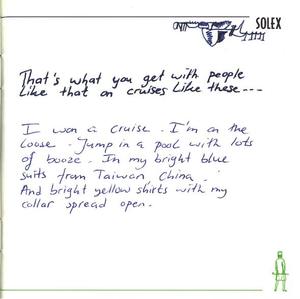 SOLEX
That's what you get with people
like that on cruises like these---
I won a cruise. I'm on the
loose. Jump in a pool with lots
of booze. In my bright blue
suits from Taiwan, China.
And bright yellow shirts with my
collar spread open.